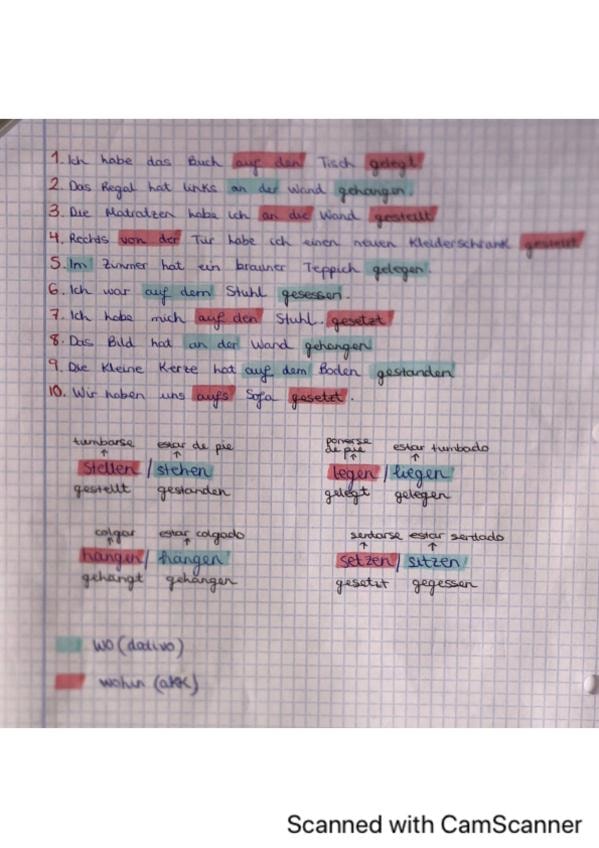 1. Ich habe das Buch auf den Tisch gelegt.
2. Das Regal hat links an der Wand gehangen.
3. Die Matratzen habe ich an die Wand gestellt
4. Rechts von der Tür habe ich einen neuen Kleiderschrank gestellt
5. Im Zimmer hat ein brauner Teppich gelegen.
6. Ich war auf dem Stuhl gesessen.
7. Ich habe mich auf den Stuhl. gesetzt
8. Das Bild hat an der Wand gehangen
9. Die Kleine Kerze hat auf dem Boden gestanden
10. Wir haben uns aufs Sofa gesetzt.
tumbarse estar de pie
stellen / stehen
gestellt gestanden
ponerse de pie estar tumbado
legen / liegen
gelegt gelegen
colgar estar colgado
hängen / hängen
gehängt gehangen
sentarse estar sentado
setzen / sitzen
gesetzt gegessen
wo (dativo)
wohin (akk)
Scanned with CamScanner